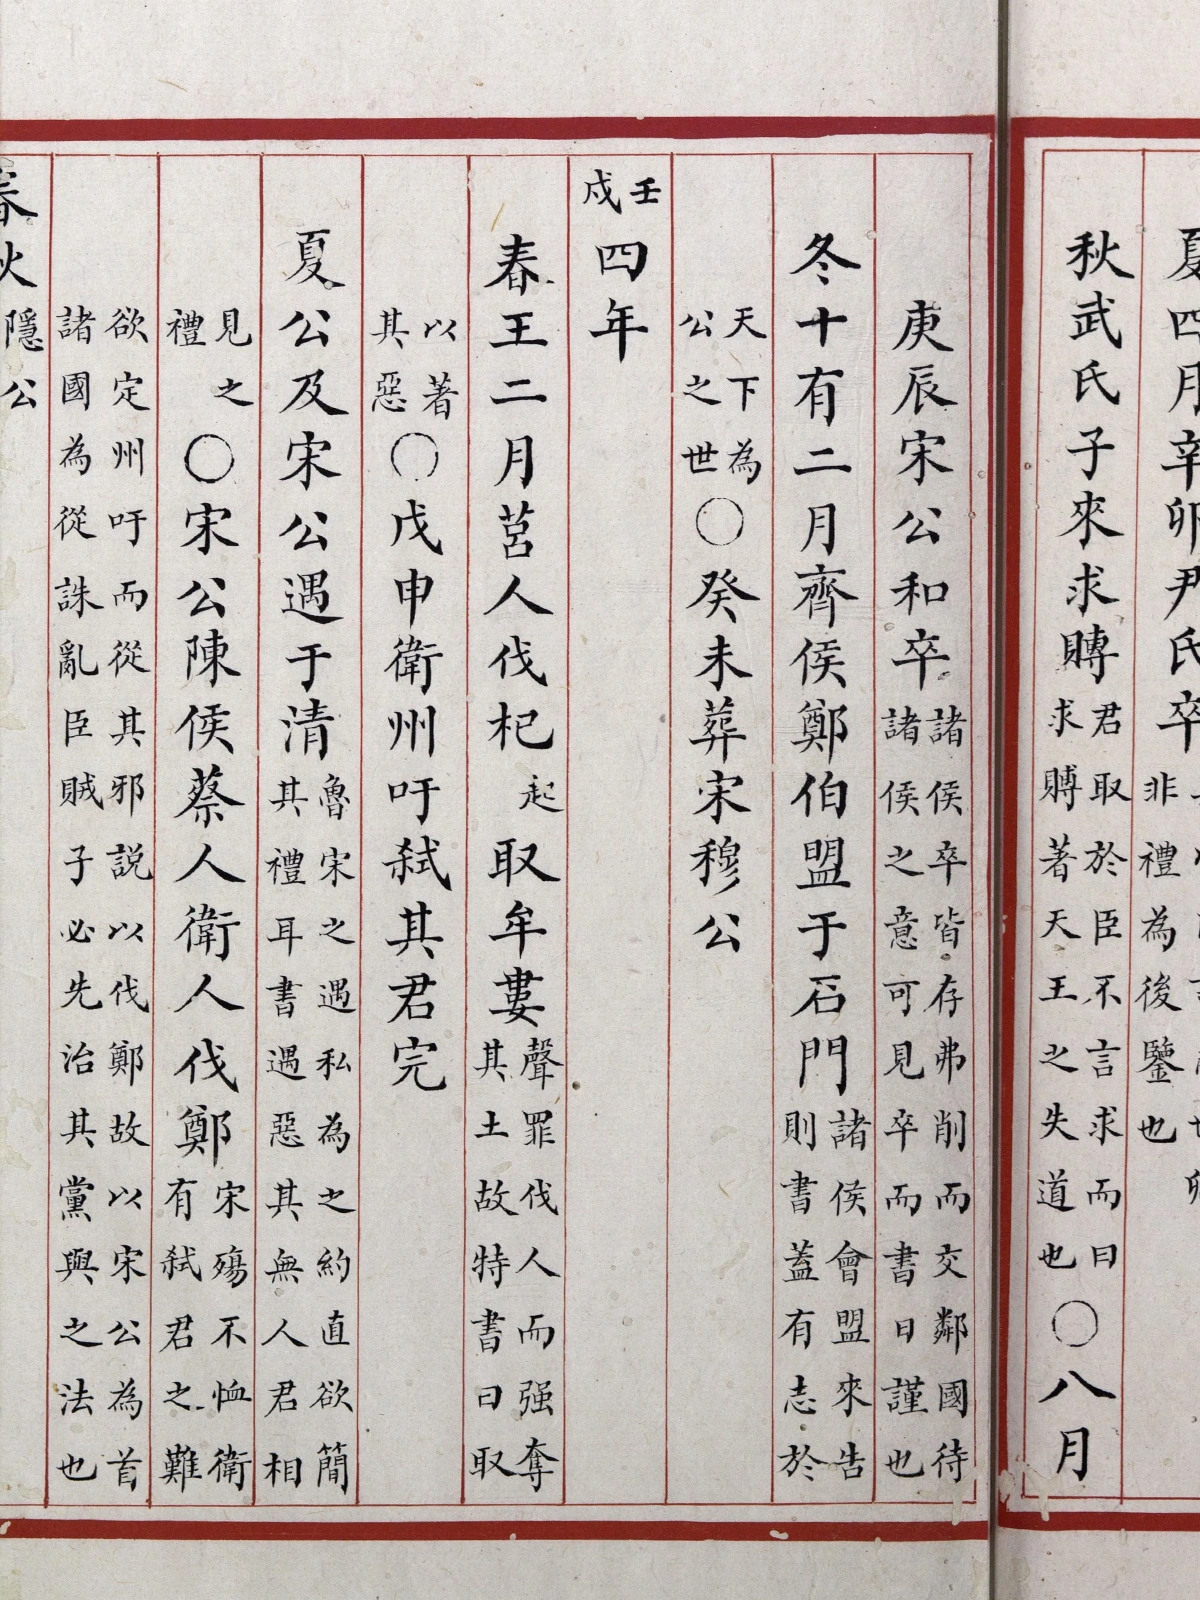 夏四月辛卯尹氏卒非禮為後鑒也
秋武氏子來求賻君取於臣不言求而曰求賻著天王之失道也〇八月
庚辰宋公和卒諸侯卒皆存弗削而交鄰國待諸侯之意可見卒而書日謹也
冬十有二月齊侯鄭伯盟于石門諸侯會盟來告則書蓋有志於
天下為公之世〇癸未葬宋穆公
壬戌四年
春王二月莒人伐杞起取牟婁聲罪伐人而强奪其土故特書曰取
以著其惡〇戊申衛州吁弒其君完
夏公及宋公遇于清魯宋之遇私為之約直欲簡其禮耳書遇惡其無人君相
見之禮〇宋公陳侯蔡人衛人伐鄭宋殤不恤衛有弒君之難
欲定州吁而從其邪説以伐鄭故以宋公為首諸國為從誅亂臣賊子必先治其黨與之法也
春秋隱公